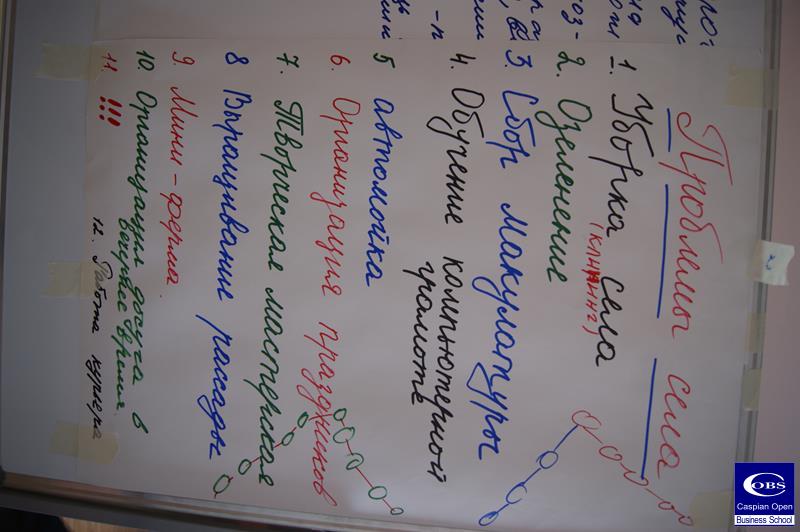 Проблемы села
1. Уборка села
(клининг)
2. Озеленение
3. Сбор макулатуры
4. Обучение компьютерной
грамоте
5 автомойка
6. Организация праздников
7. Творческая мастерская
8 Выращивание рассады
9. Мини-ферма.
10. Организация досуга в
вечернее время.
11. !!!
12. Работа курьера
COBS
Caspian Open
Business School